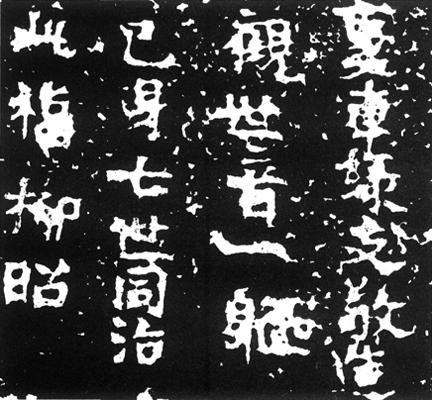 車敬造
觀世音一軀
己身七世同治
此福柳昭